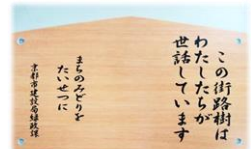 この街路樹は
わたしたちが
世話しています
まちのみどりを
たいせつに
京都市建設局緑政課